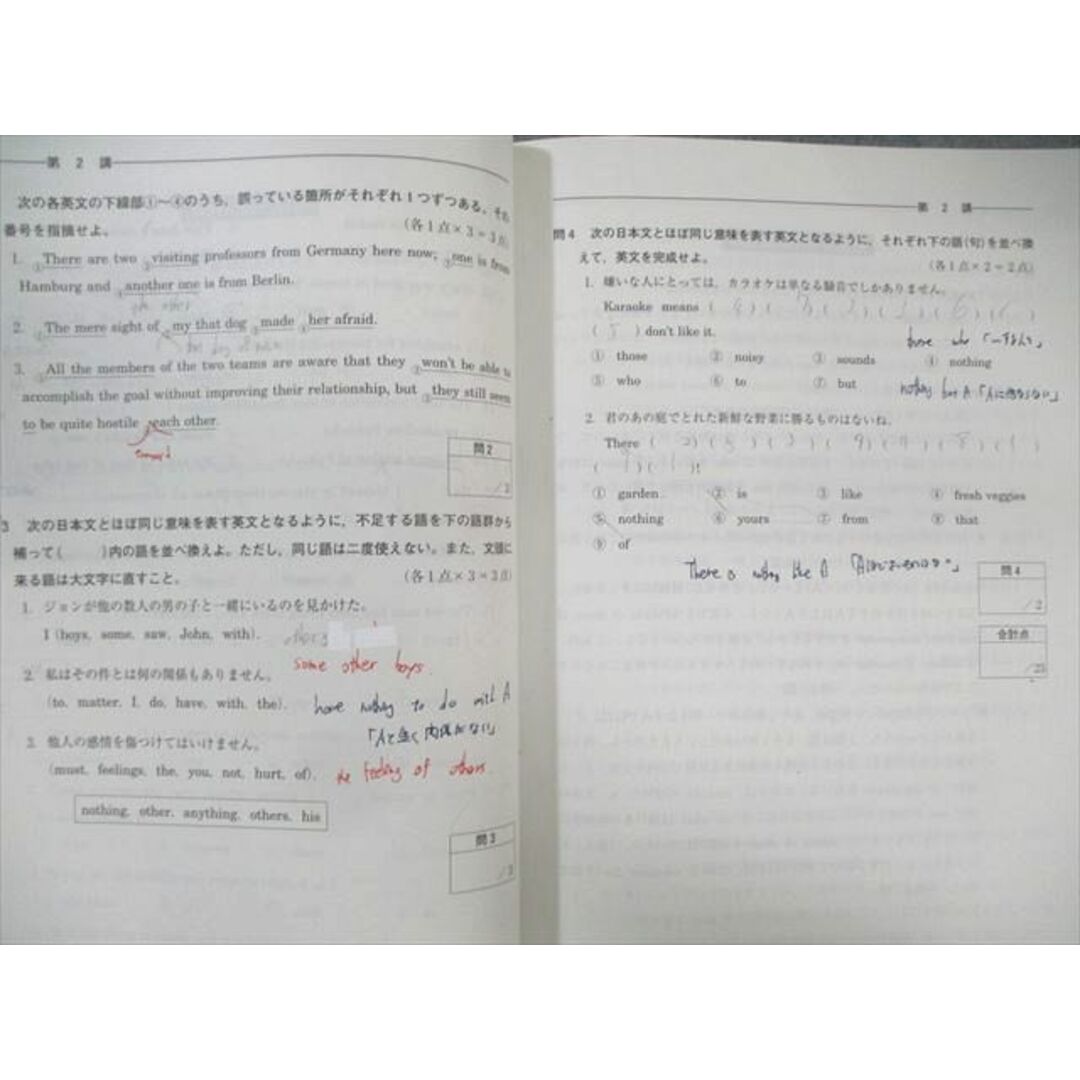 第 2 講
次の各英文の下線部①~④のうち,誤っている箇所がそれぞれ1つずつある。その
番号を指摘せよ。
(各1点×3=3点)
1. ①There are two ②visiting professors from Germany here now; ③one is from
Hamburg and ④another one is from Berlin.
the other
2. ①The mere sight of ②my that dog ③made ④her afraid.
3. ①All the members of the two teams are aware that they ②won't be able to
accomplish the goal without improving their relationship, but ③they still seem
to be quite hostile ④each other.
toward
問2
/3
3 次の日本文とほぼ同じ意味を表す英文となるように,不足する語を下の語群から
補って( )内の語を並べ換えよ。ただし,同じ語は二度使えない。また,文頭に
来る語は大文字に直すこと。
(各1点×3=3点)
1. ジョンが他の数人の男の子と一緒にいるのを見かけた。
I (boys, some, saw, John, with).
others
some other boys
2. 私はその件とは何の関係もありません。
(to, matter, I, do, have, with, the).
have nothing to do with A
「Aと全く関係がない」
3. 他人の感情を傷つけてはいけません。
(must, feelings, the, you, not, hurt, of).
the feeling of others.
nothing, other, anything, others, his
問3
/3
第 2 講
問4 次の日本文とほぼ同じ意味を表す英文となるように,それぞれ下の語(句)を並べ換
えて,英文を完成せよ。
(各1点×2=2点)
1. 嫌いな人にとっては,カラオケは単なる騒音でしかありません。
Karaoke means ( 4 ) (
( 5 ) don't like it.
those who 「~する人」
① those ② noisy ③ sounds ④ nothing
⑤ who ⑥ to ⑦ but
nothing but A 「Aに他ならない」
2. 君のあの庭でとれた新鮮な野菜に勝るものはないね。
There ( 2 ) ( 5 ) ( 3 ) (
!
① garden ② is ③ like ④ fresh veggies
⑤ nothing ⑥ yours ⑦ from ⑧ that
⑨ of
There is nothing like A
問4
/2
合計点
/25